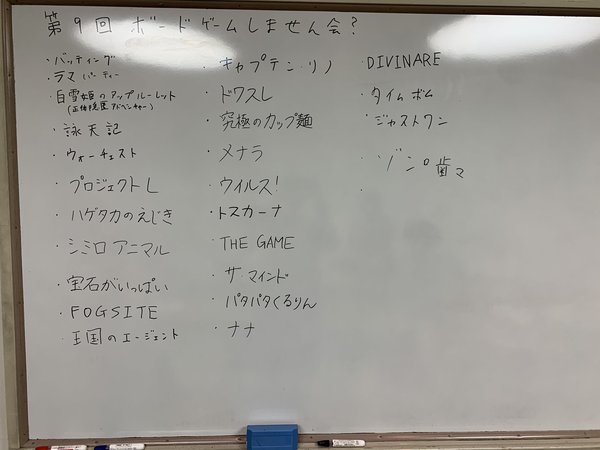 第9回 ボードゲームしません会?
・バッティング
・ラマ パーティー
・白雪姫のアップルーレット
(正体隠匿アドベンチャー)
・詠天記
・ウォーチェスト
・プロジェクトL
・ハゲタカのえじき
・シミロ アニマル
・宝石がいっぱい
・FOGSITE
・王国のエージェント
・キャプテン・リノ
・ドワスレ
・究極のカップ麺
・メナラ
・ウイルス!
・トスカーナ
・THE GAME
・ザ・マインド
・パタパタくるりん
・ナナ
・DIVINARE
・タイムボム
・ジャストワン
・ゾンロ歯マ